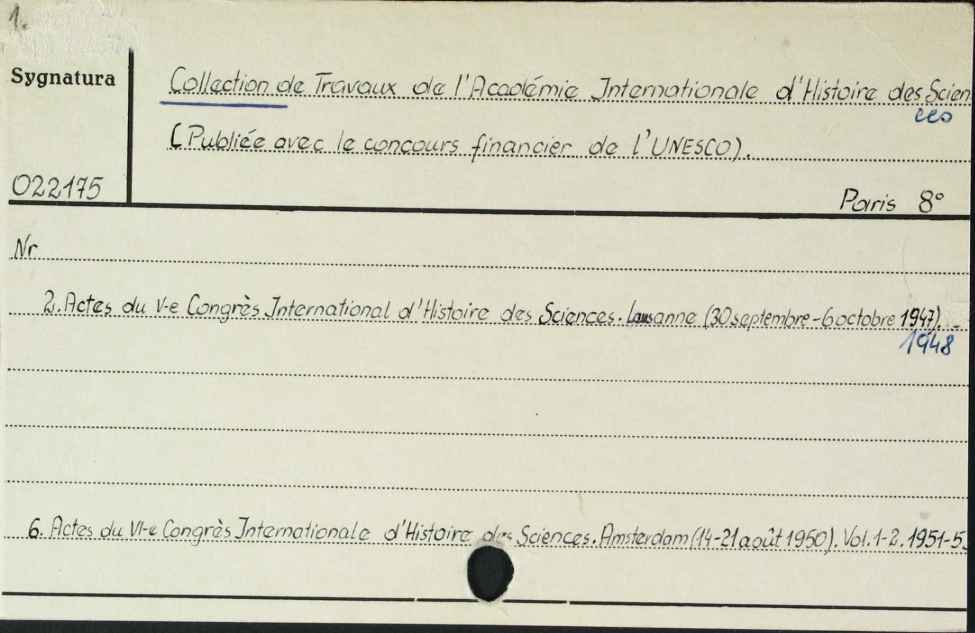 1.
Sygnatura
Collection de Travaux de l'Académie Internationale d'Histoire des Scien
ces
(Publiée avec le concours financier de l'UNESCO).
022175
Paris 8°
Nr
2. Actes du V-e Congrès International d'Histoire des Sciences. Lausanne (30 septembre - 6 octobre 1947). -
1948
6. Actes du VI-e Congrès Internationale d'Histoire des Sciences. Amsterdam (14-21 août 1950). Vol. 1-2. 1951-5